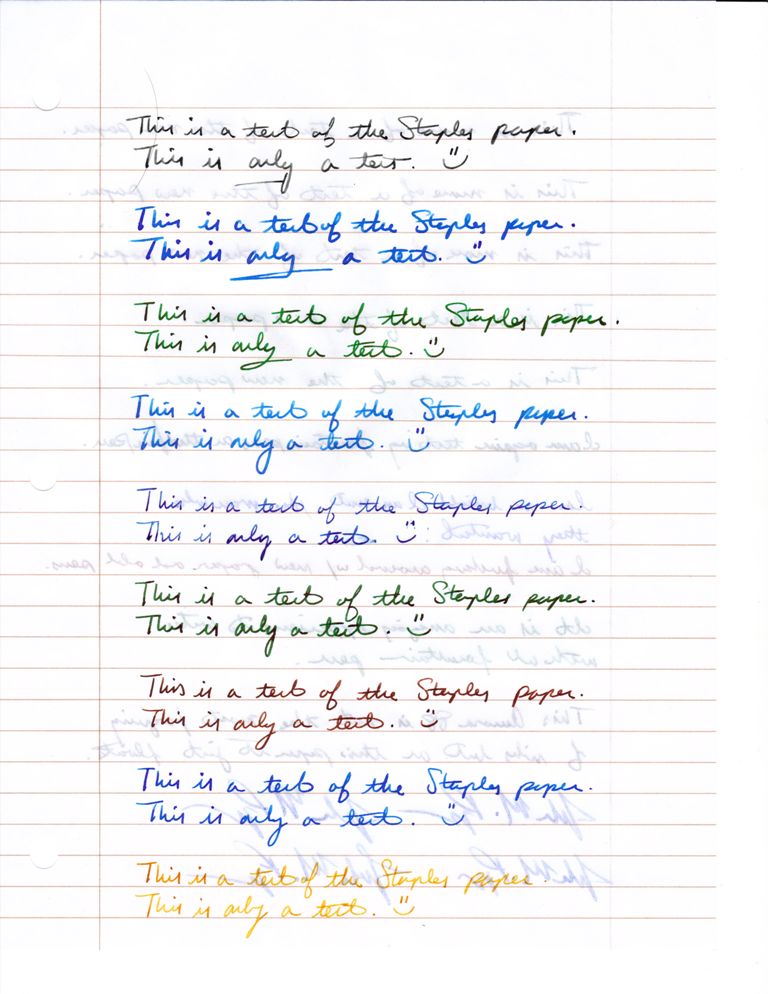 This is a test of the Staples paper.
This is only a test. :)
This is a test of the Staples paper.
This is only a test. :)
This is a test of the Staples paper.
This is only a test. :)
This is a test of the Staples paper.
This is only a test. :)
This is a test of the Staples paper.
This is only a test. :)
This is a test of the Staples paper.
This is only a test. :)
This is a test of the Staples paper.
This is only a test. :)
This is a test of the Staples paper.
This is only a test. :)
This is a test of the Staples paper.
This is only a test. :)